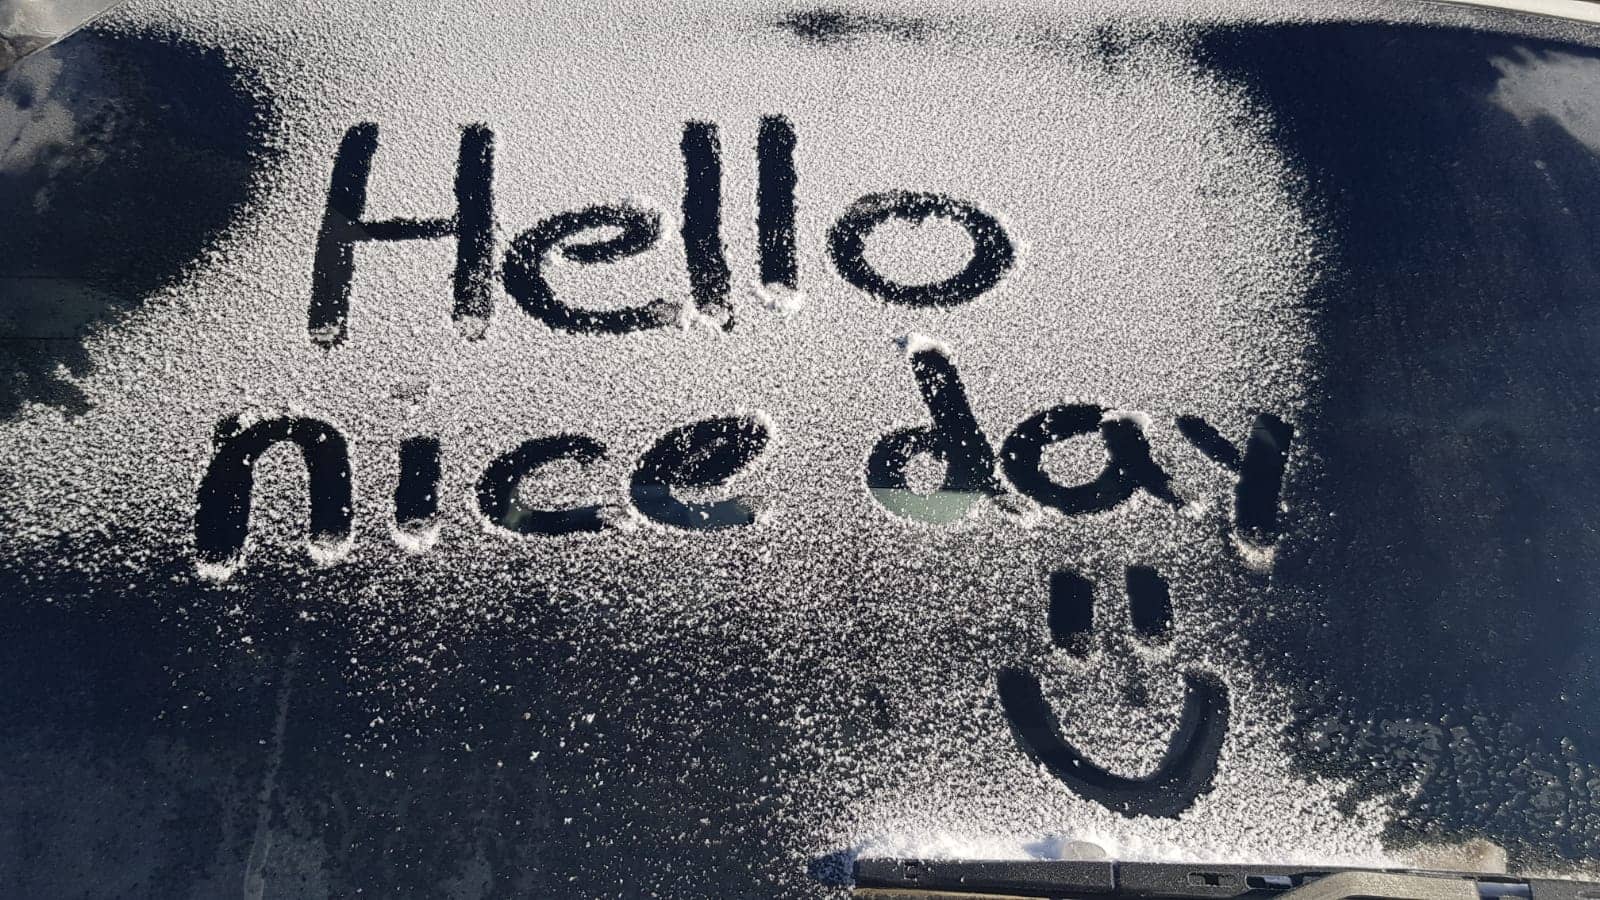 Hello
nice day